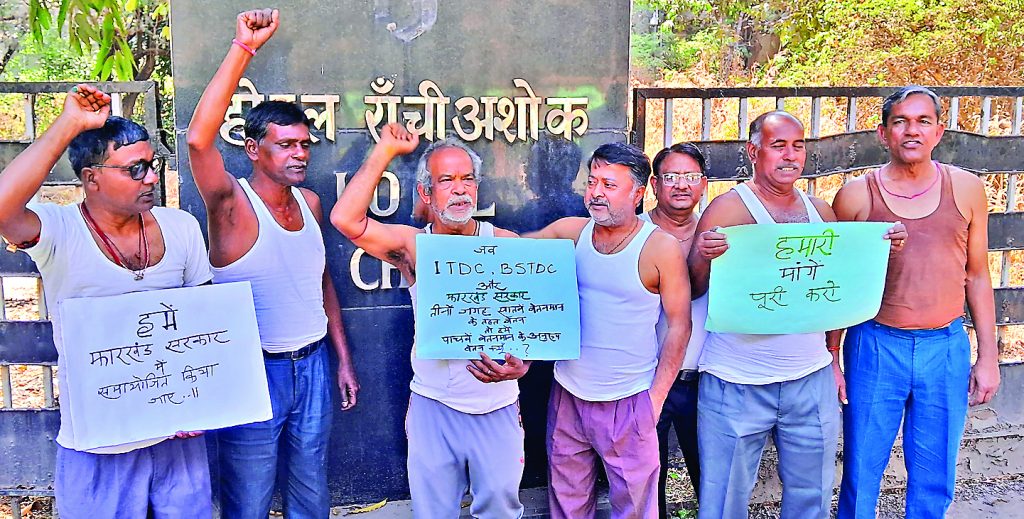 होटल राँची अशोक
HOTEL
हमें
झारखंड सरकार
में
समायोजित किया
जाए..!!
जब
ITDC, BSTDC
और
झारखंड सरकार
तीनों जगह सातवें वेतनमान
के तहत वेतन
तो हमें
पाचवें वेतनमान के अनुरूप
वेतन क्यूँ...?
हमारी
मांगें
पूरी करो